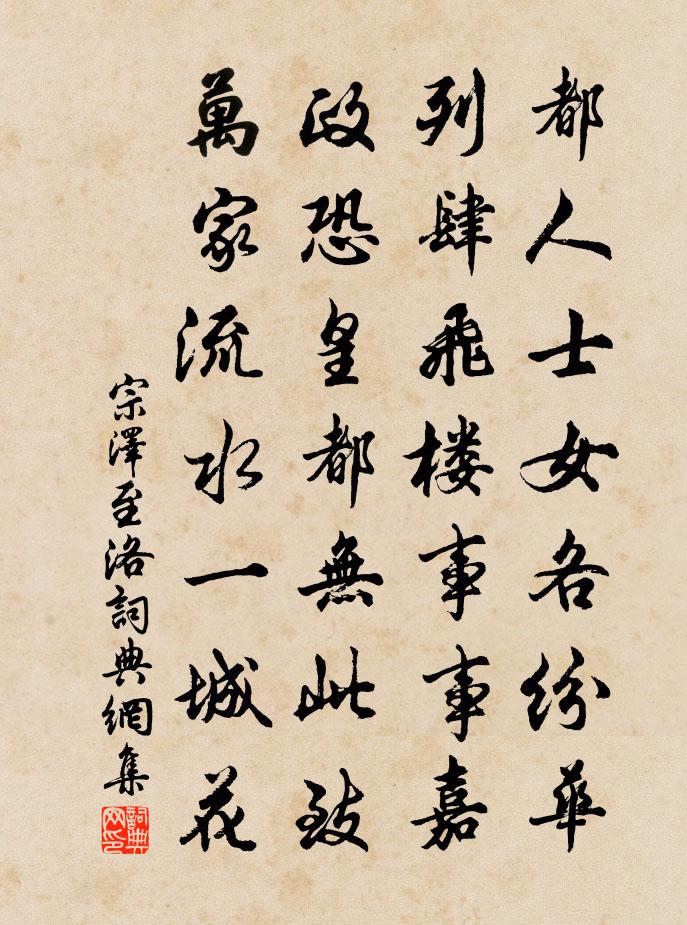 都人士女各紛華
列肆飛楼事事嘉
政恐皇都無此致
萬家流水一城花
宗澤至洛詞典網集
詞典網印